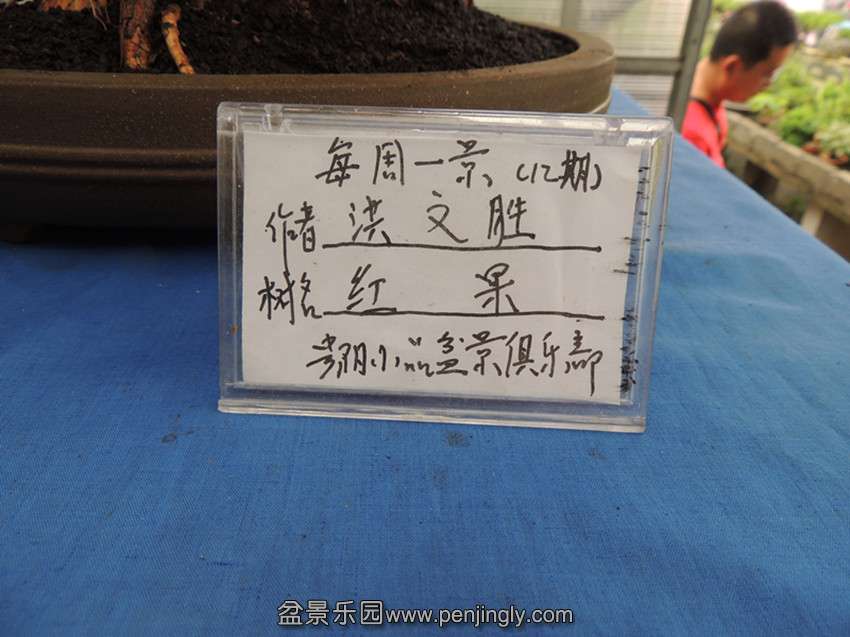 每周一景(12期)
作者 洪文胜
树名 红果
小品盆景俱乐部
盆景乐园www.penjingly.com